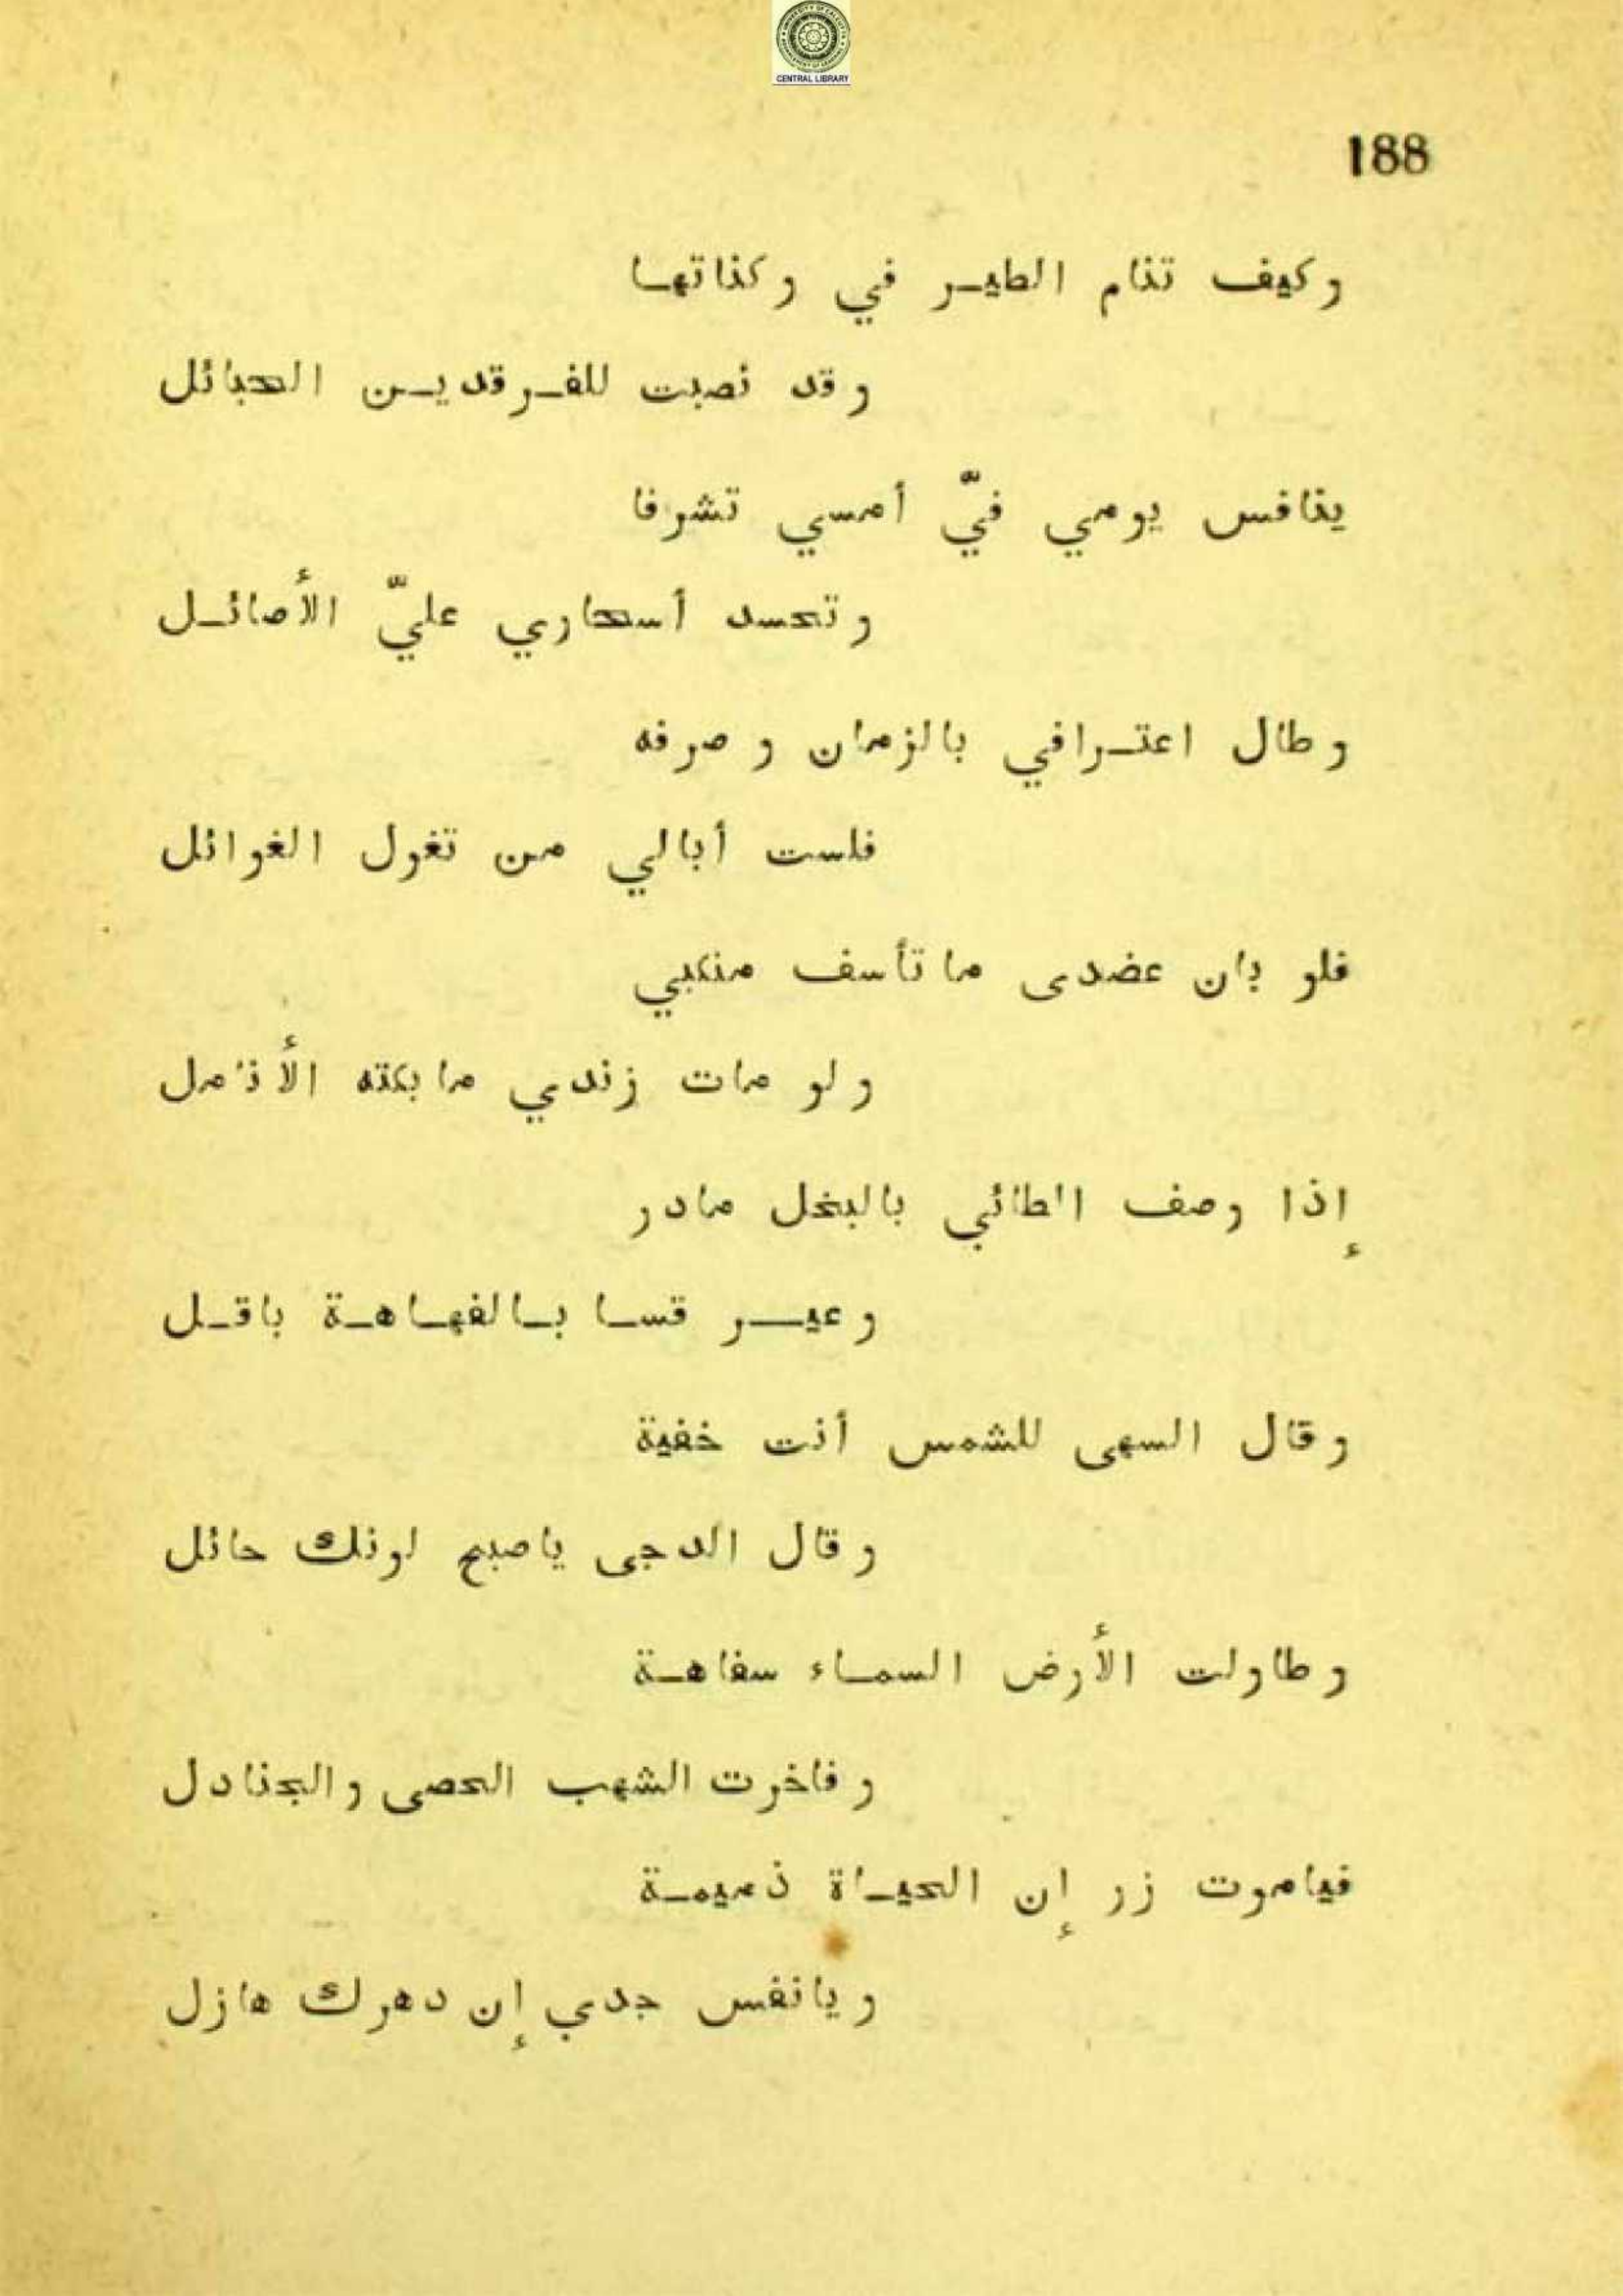 CENTRAL LIBRARY
188
وكيف تنام الطيـر في وكناتهـا
وقد نصبت للفـرقديـن الحبائل
ينافس يومي فيّ أمسي تشرفا
وتحسد أسحاري عليّ الأصائـل
وطال اعتـرافي بالزمان وصرفه
فلست أبالي من تغول الغوائل
فلو بان عضدى ما تأسف منكبي
ولو مات زندي ما بكته الأنامل
إذا وصف الطائي بالبخل مادر
وعيـــر قسـا بـالفهـاهـة باقـل
وقال السهى للشمس أنت خفية
وقال الدجى ياصبح لونك حائل
وطاولت الأرض السمـاء سفاهـة
وفاخرت الشهب الحصى والجنادل
فياموت زر إن الحيـاة ذميمـة
ويانفس جدي إن دهرك هازل